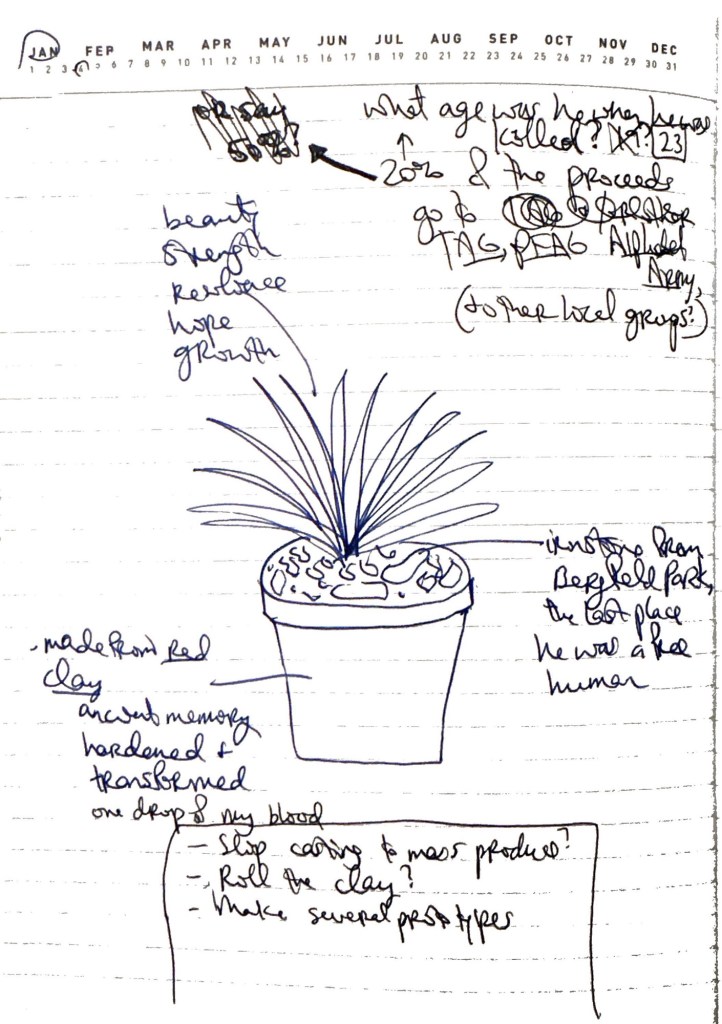 JAN FEP MAR APR MAY JUN JUL AUG SEP OCT NOV DEC
1 2 3 4 5 6 7 8 9 10 11 12 13 14 15 16 17 18 19 20 21 22 23 24 25 26 27 28 29 30 31
or say
50%?
what age was he when he was
called? 23
20% of the proceeds
go to
TAG, PEAG Alphabet
Army,
(to other local groups?)
beauty
strength
resilience
hope
growth
from
Bergfeld Park,
the last place
he was a free
human
- made from red
clay
ancient memory
hardened &
transformed
one drop of my blood
- Slip casting to mass produce?
- Roll the clay?
- Make several prototypes